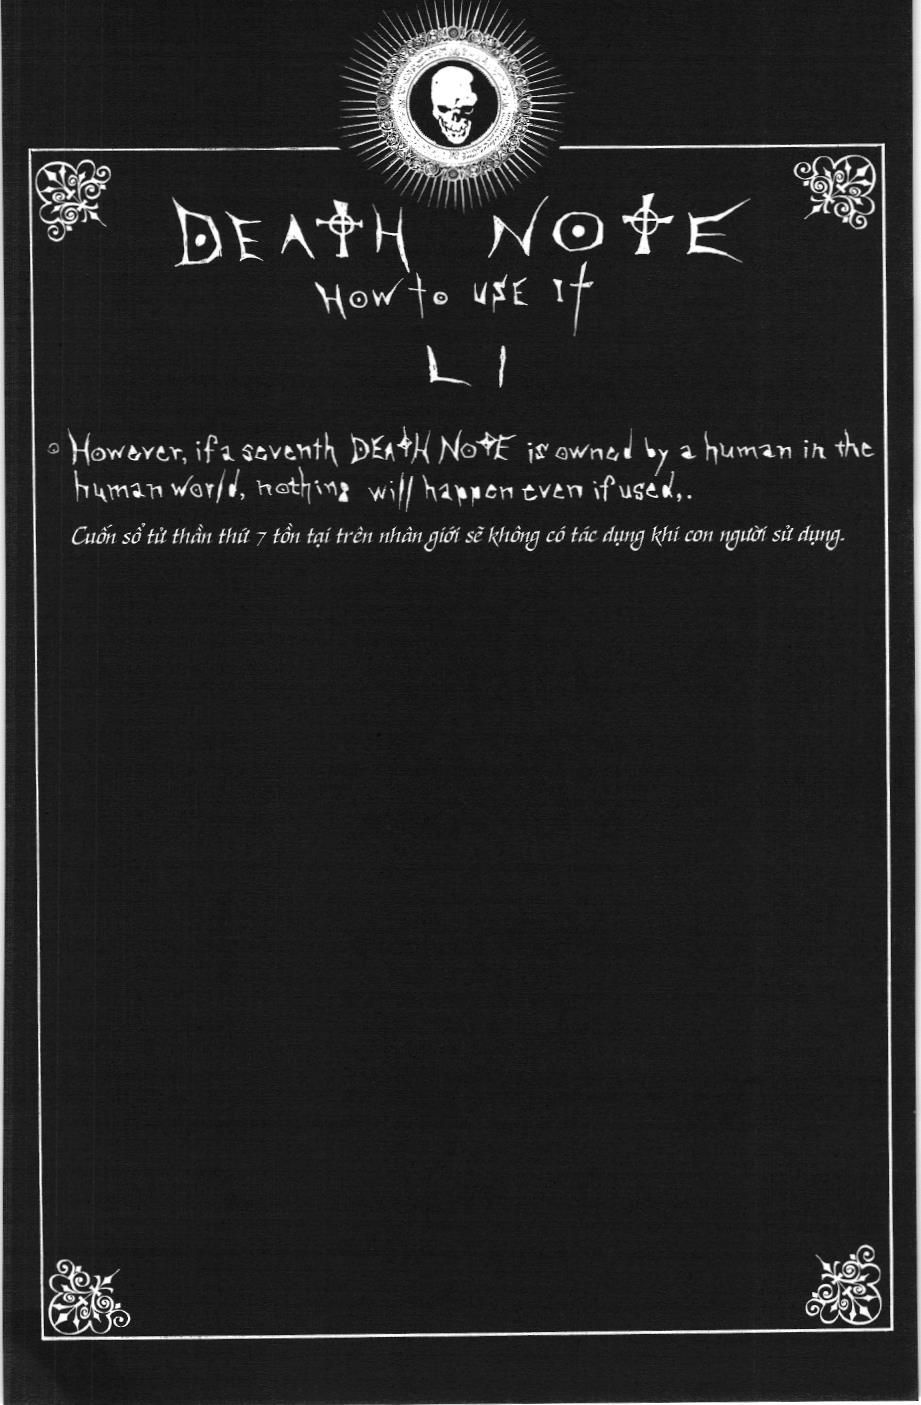 DEATH NOTE
HOW to USE It
LI
However, if a seventh DEAtH NOtE is owned by a human in the
human world, nothing will happen even if used,.
Cuốn sổ tử thần thứ 7 tồn tại trên nhân giới sẽ không có tác dụng khi con người sử dụng.